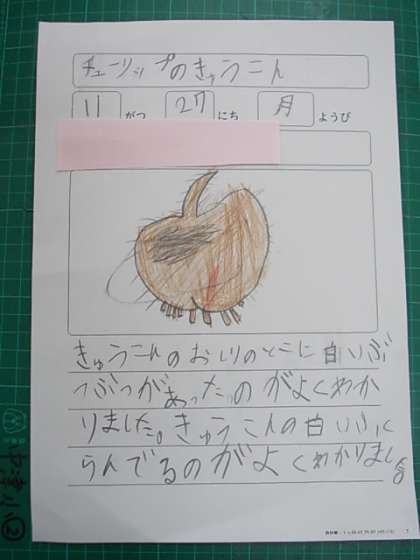 チューリップのきゅうこん
11 がつ 27 にち 月 ようび
きゅうこんのおしりのとこに白いぶ
つぶつがあったのがよくわか
りました。きゅうこんの白いふく
らんでるのがよくわかりました